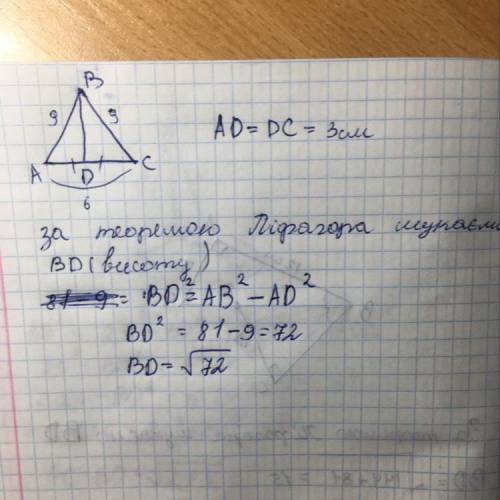 B
9 9
AD = DC = 3см
A D C
6
за теоремою Піфагора шукаємо
BD (висоту)
BD² = AB² - AD²
BD² = 81 - 9 = 72
BD = √72